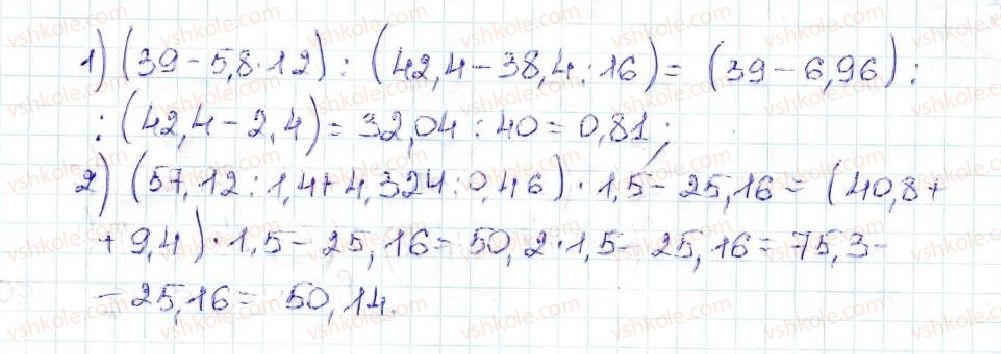 1) (39 - 5,8 · 12) : (42,4 - 38,4 : 16) = (39 - 6,96) :
: (42,4 - 2,4) = 32,04 : 40 = 0,81 ;
2) (57,12 : 1,4 + 4,324 : 0,46) · 1,5 - 25,16 = (40,8 +
+ 9,4) · 1,5 - 25,16 = 50,2 · 1,5 - 25,16 = 75,3 -
- 25,16 = 50,14.